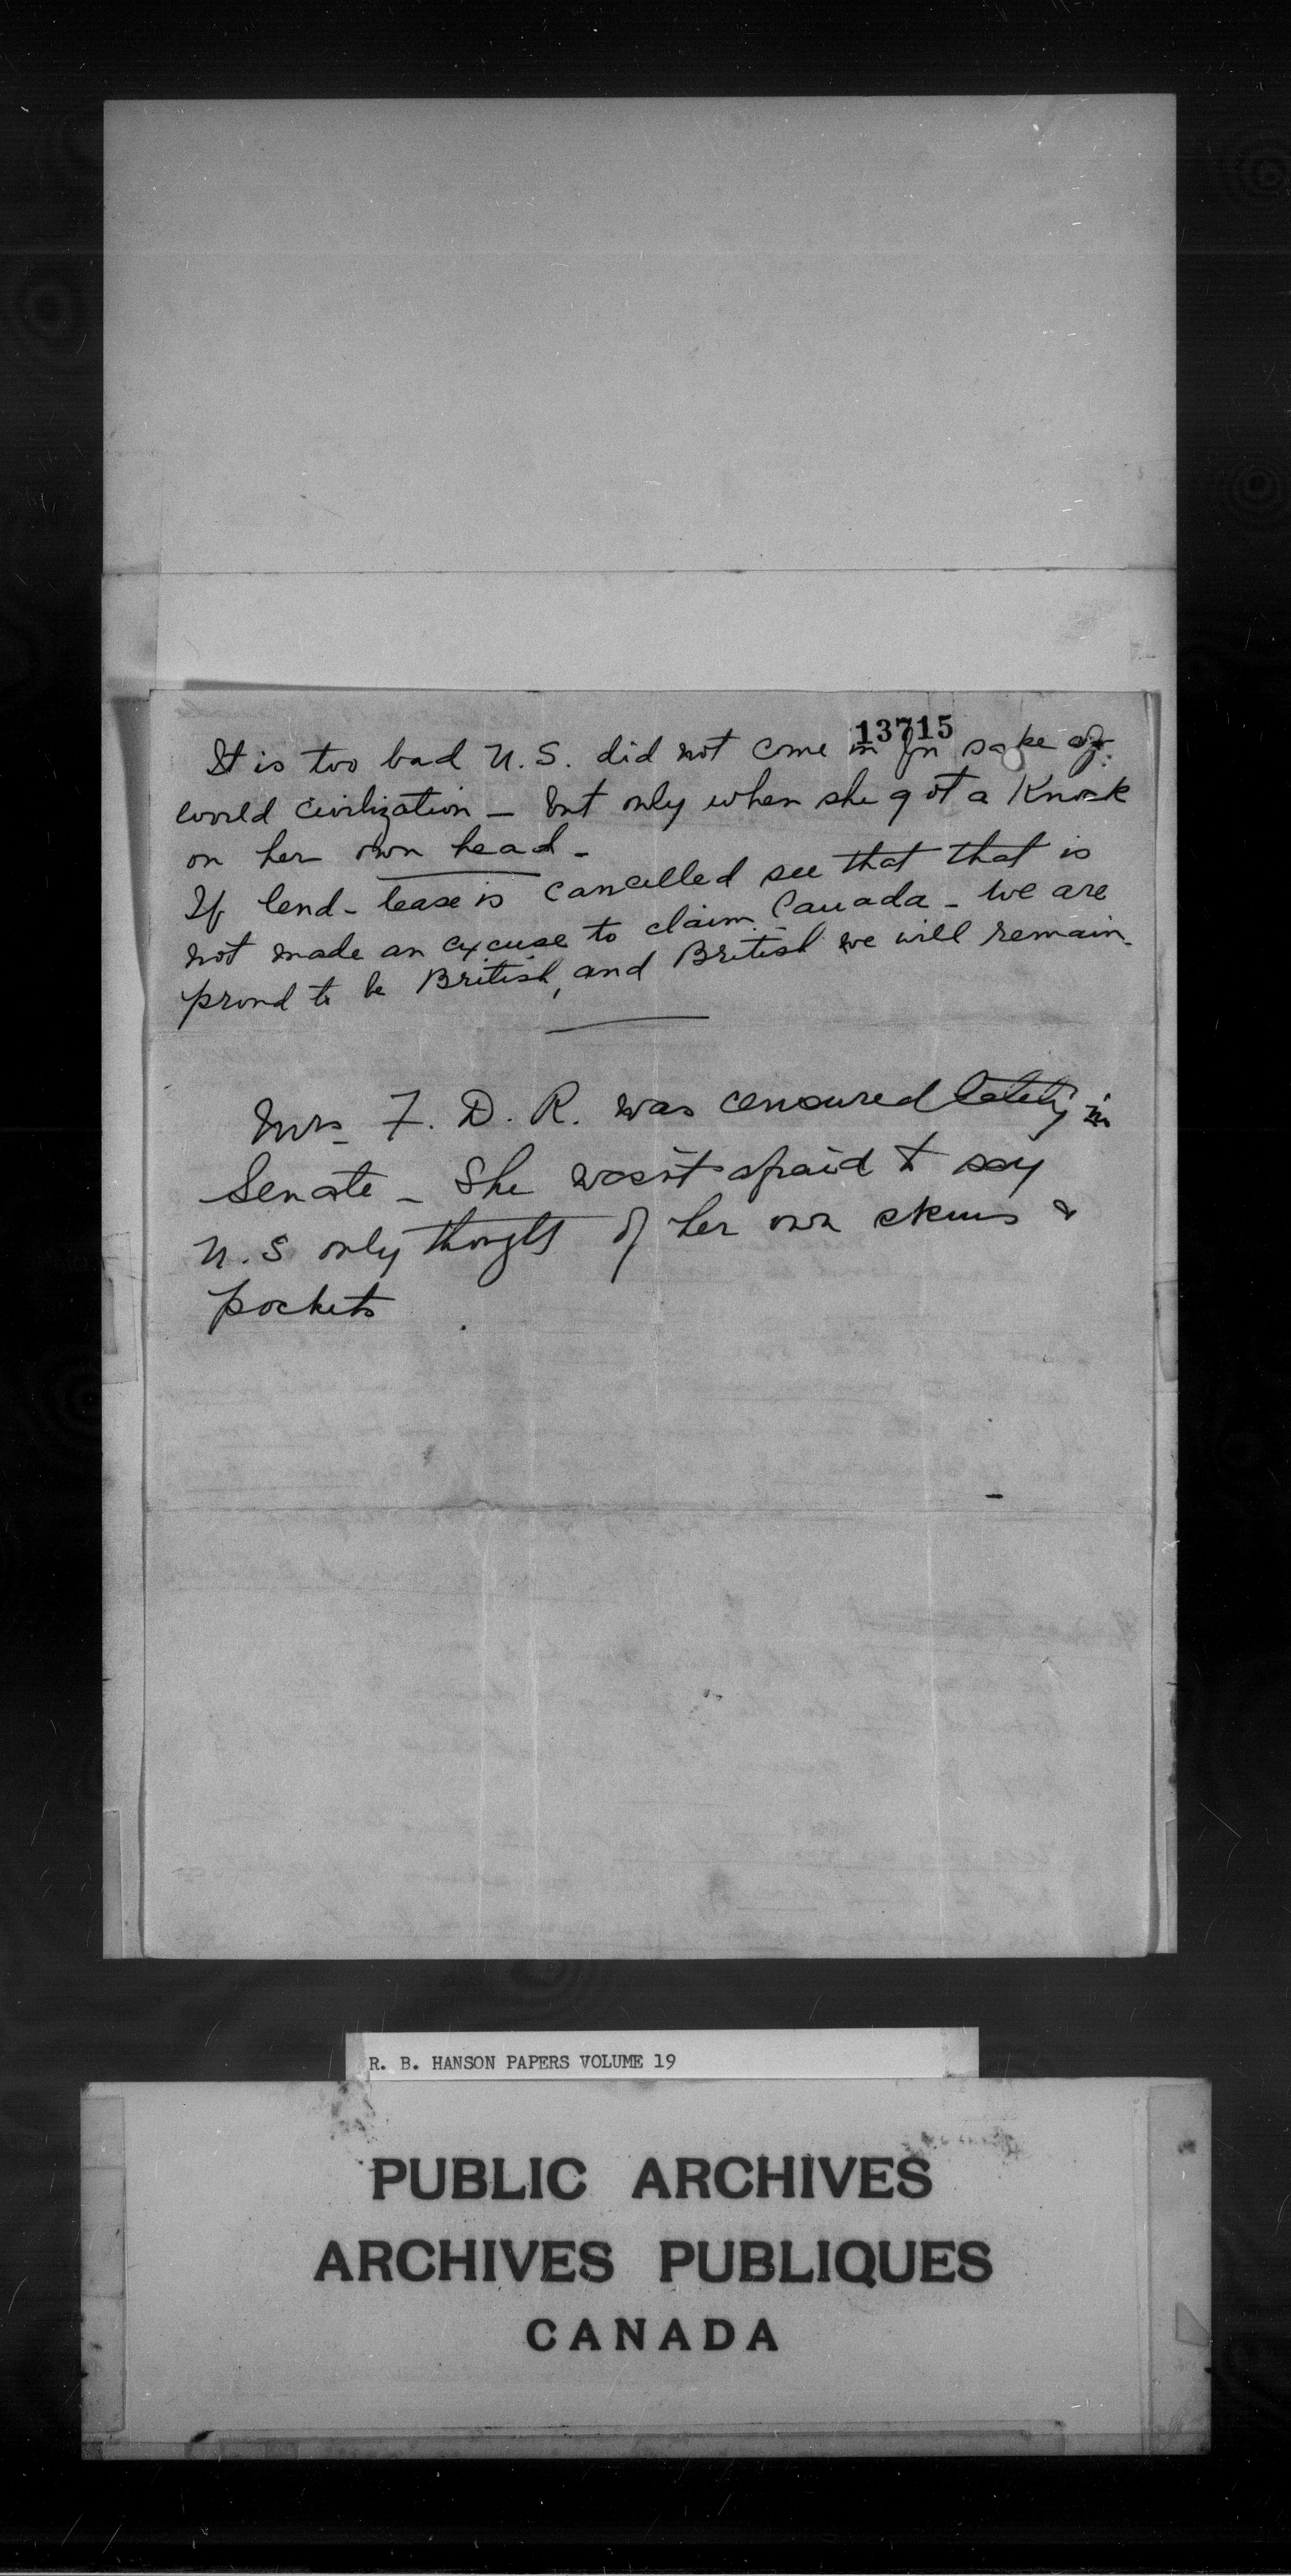 13715
It is too bad U.S. did not come in for sake of
world civilization - but only when she got a Knock
on her own head -
If lend-lease is cancelled see that that is
not made an excuse to claim Canada - we are
proud to be British, and British we will remain.
Mrs F. D. R. was censured lately in
Senate - She wasn't afraid to say
U.S only thought of her own skins &
pockets
R. B. HANSON PAPERS VOLUME 19
PUBLIC ARCHIVES
ARCHIVES PUBLIQUES
CANADA